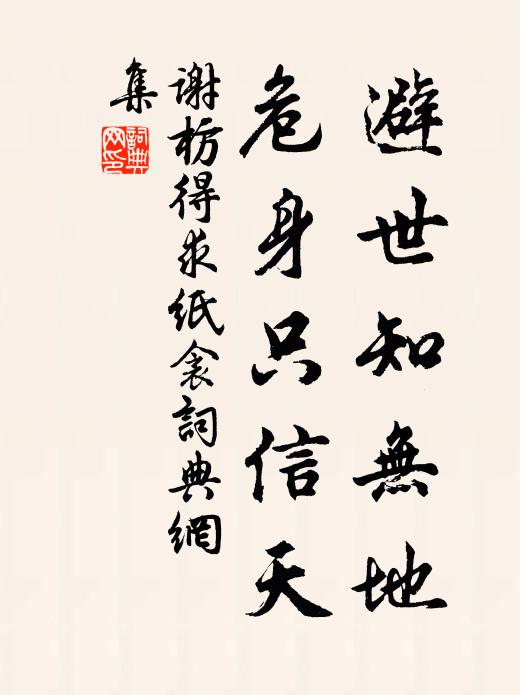 避世知無地
危身只信天
謝枋得求紙衾詞典網
集
詞典
网印